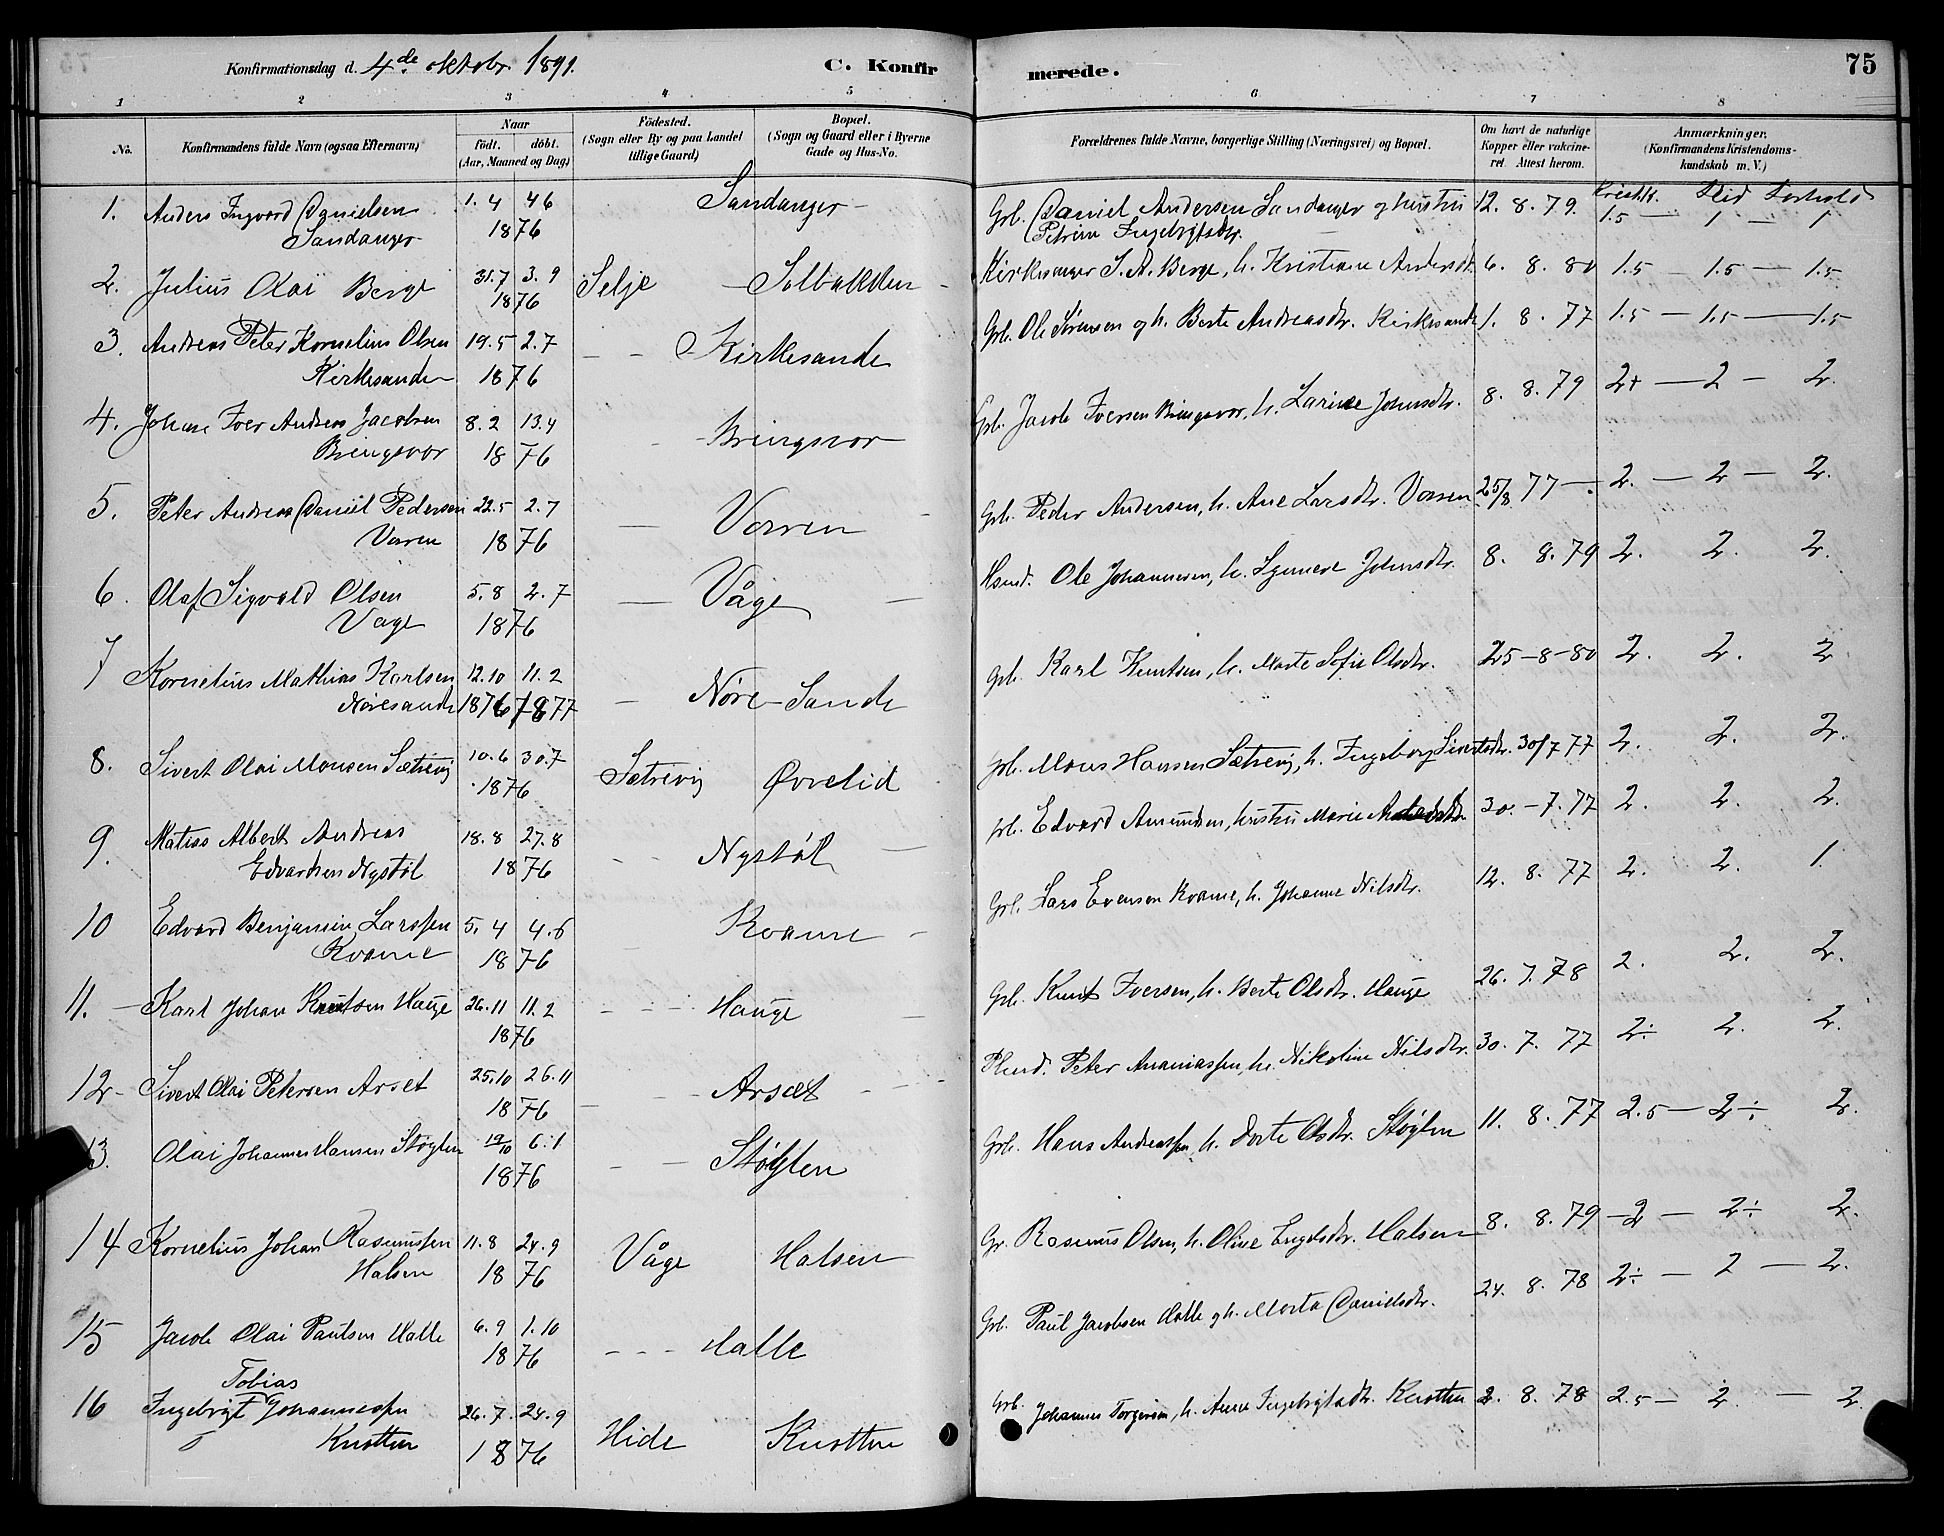 Konfirmationsdag d. 4de oktobr. 1891.
C. Konfir
merede.
75
1 2 3 4 5 6 7 8
No.
Konfirmandens fulde Navn (ogsaa Efternavn)
Naar
født. døbt.
(Aar, Maaned og Dag)
Fødested.
(Sogn eller By og paa Landet
tillige Gaard)
Bopæl.
(Sogn og Gaard eller i Byerne
Gade og Hus-No.
Forældrenes fulde Navne, borgerlige Stilling (Næringsvei) og Bopæl.
Om havt de naturlige
Kopper eller vakcine-
ret. Attest herom.
Anmærkninger.
(Konfirmandens Kristendoms-
kundskab m. V.)
Flid Forhold
1. Anders Ingvard Danielsen 1. 4 4 6 Sandanger Grb. Daniel Andersen Sandanger og hustru 12. 8. 79. 1.5 — 1 — 1
Sandanger 1876 Petrine Ingebrigtsdtr.
2. Julius Olai Berge 31.7 3. 9 Selje Solbakken Kirkesanger S. A. Berge, h. Kristiane Andersdt. 6. 8. 80 1.5 — 1.5 — 1.5
1876
3. Andreas Peter Kornelius Olsen 19.5 2.7 — — Kirkesande Grb. Ole Sørensen og h. Berte Andreasdtr. Kirkesande 1. 8. 77 1.5 — 1.5 — 1.5
Kirkesande 1876
4. Johan Iver Andreas Jacobsen 8.2 13.4 Bringsvor Grb. Jacob Iversen Bringsvor, h. Larine Johnsdtr. 8. 8. 79 2+ — 2 — 2.
Bringsvor 1876
5. Peter Andreas Daniel Pedersen 22.5 2.7 — Vorren Grb. Peder Andersen, h. Ane Larsdtr. Vorren 25/8 77 — 2. — 2 — 2.
Vorren 1876
6. Olaf Sigvald Olsen 5.8 2.7 — Våge Hsmd. Ole Johannesen, h. Johnsdtr. 8. 8. 79 2. 2. 2.
Vage 1876
7 Kornelius Mathias Karlsen 12.10 11.2 — Nøre-Sande Grb. Karl Knutsen, h. Marte Sofie Olsdtr. 25-8-80 2. 2. 2
Nøresande 1876/1877
8. Sivert Olai Monsen Sætrevig 10.6 30.7 Sætrevig Øvrelid Grb. Mons Hansen Sætrevig, h. Ingeborg Sivertsdtr. 30/7 77 2. 2. 2.
1876
9. Matias Albert Andreas 18.8 27.8 — — Nystøl Grb. Edvard Amundsen, hustru Marie 30. - 7. 77 2. 2. 2.
Edvardsen Nystøl 1876
10 Edvard Benjamin Larssen 5. 4 4.6 — Kvame Grb. Lars Evensen Kvame, h. Johanne Nilsdtr. 12. 8. 77 2. 2. 1.
Kvame 1876
11. — Karl Johan Knutsen Hauge 26.11 11.2 — — — Hauge Grb. Knut Iversen, h. Berte Olsdtr. Hauge 26. 7. 78 2. 2. 2.
1876
12 - Sivert Olai Petersen Arset 25.10 26.11 — Arsæt Plmd. Peter Ananiassen, h. Nikoline Nilsdtr. 30. 7. 77 2÷ 2. 2.
1876
13. Olai Johannes Hansen Støylen 19/10 6.1 — — Støylen Grb. Hans Andreassen h. Dorte Olsdtr. Støylen 11. 8. 77 2.5 — 2÷ 2.
1876
14 Kornelius Johan Rasmussen 11.8 24.9 Våge Halsen Gr. Rasmus Olsen, h. Oline Engelsdtr. Halsen 8. 8. 79 - 2 — 2÷ 2.
Halsen 1876
15 Jacob Olai Paulsen Halle 6.9 1.10 — — — Halle Grb. Paul Jacobsen Halle og h. Marta Danielsdtr. 24. 8. 78 2÷ — 2 — 2.
1876
Tobias
16 Ingebrigt Johannessen 26.7. 24.9 Hide Knotten Grb. Johannes Torgersen, h. Anne Ingebrigtsdtr. Knotten 2. 8. 78 2.5 — 2 — 2
Knotten 1876